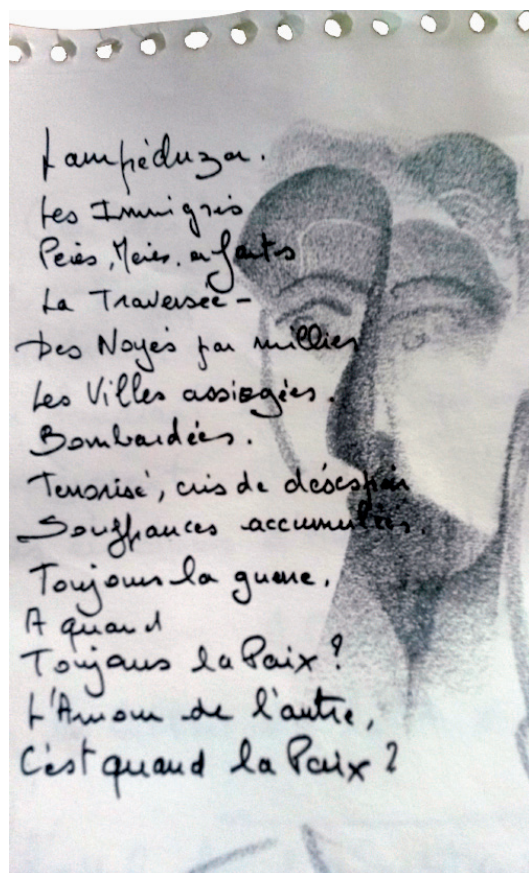 Lampéduza.
Les Immigrés
Pères, Mères, enfants
La Traversée -
Des Noyés par millier
Les Villes assiégées.
Bombardées.
Terrorisé, cris de désespoir
Souffrances accumulées.
Toujours la guerre,
A quand
Toujours la Paix ?
L'Amour de l'autre,
C'est quand la Paix ?